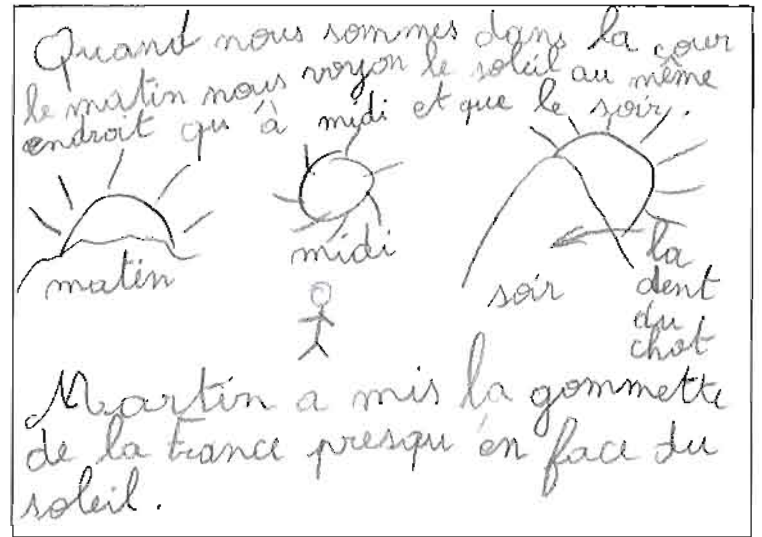 Quand nous sommes dans la cour
le matin nous voyon le soleil au même
endroit qu'à midi et que le soir.
matin
midi
soir
la
dent
du
chat
Martin a mis la gommette
de la France presqu'en face du
soleil.